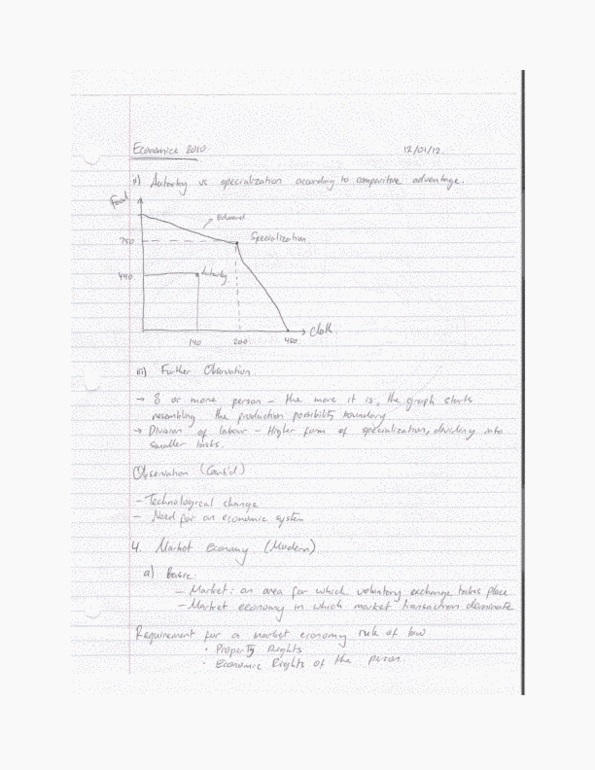 Economics 2010
12/01/12.
ii) Autarky vs specialization according to comparitive advantage.
Food
Edward
750
Specialization
440
Autarky
140 200 450
Cloth
iii) Further Observation
→ 8 or more person – the more it is, the graph starts
resembling the production possibility boundary
→ Division of labour – Higher form of specialization, dividing into
smaller tasks.
Observation (Cont'd)
– Technological change
– Need for an economic system
4. Market Economy (Modern)
a) Basic
– Market: an area for which voluntary exchange takes place
– Market economy in which market transaction dominate
Requirement for a market economy rule of law
· Property Rights
· Economic Rights of the person.